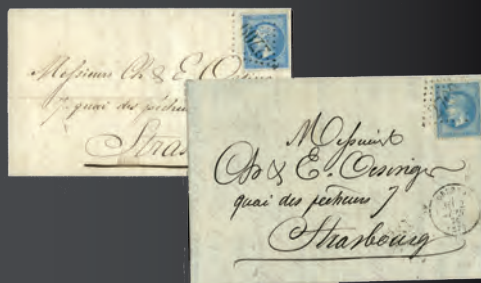 Messieurs Ch & E. O
7 quai des pêcheu
Stras
Messieurs
Ch & E. Oesinger
quai des pêcheurs 7
Strasbourg